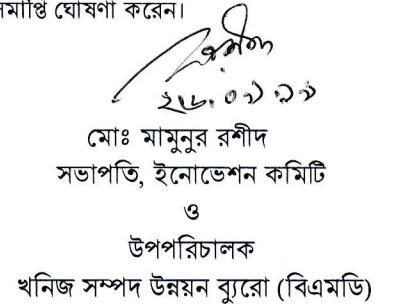 সমাপ্তি ঘোষণা করেন।
মোঃ মামুনুর রশীদ
সভাপতি, ইনোভেশন কমিটি
ও
উপপরিচালক
খনিজ সম্পদ উন্নয়ন ব্যুরো (বিএমডি)